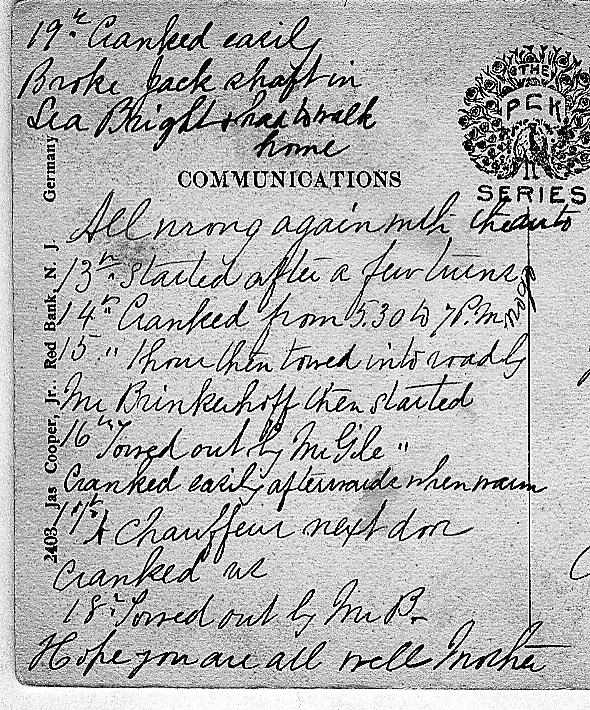 19th Cranked easily
Broke Jack shaft in
Sea Bright & had to walk
home
THE
PCK
SERIES
COMMUNICATIONS
All wrong again with the auto
13th Started after a few turns
14th Cranked from 5.30 to 7 P.M.
15 " 1 hour then towed into road by
Mr Brinkerhoff then started
16th Towed out by Mr Gile "
Cranked easily afterwards when warm
17th A Chauffeur next door
cranked us
18th Towed out by Mr B.
Hope you are all well Mother
2403. Jas Cooper, Jr., Red Bank, N. J Germany